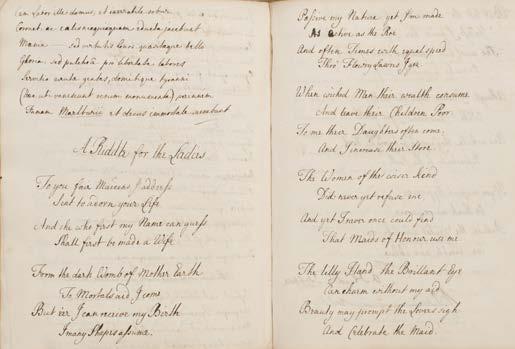 labor ille domus, et
Corruet, ac calis nequiequam educta jacebunt
Mania sed virtutis honos
Gloria sed pulchræ pro libertate labores
Servitio gentes, domitique tyranni
Famam Marlburii et decus immortale
A Riddle for the Ladies
To you fair Maidens I address
Sent to adorn your Life
And she who first my Name can guess
Shall first be made a Wife
From the dark Womb of Mother Earth
To Mortals aid I come
But e'er I can receive my Birth
I many Shapes assume.
Passive my Nature yet I'm made
As active as the Roe
And often Times with equal speed
Thro' Flowry Lawns I go
When wicked Men their wealth consume
And leave their Children Poor
To me their Daughters often come
And I increase their Store
The Women of the wiser kind
Did never yet refuse me
And yet I never once could find
That Maids of Honour use me
The lilly Hand the Brilliant Eye
Can charm without my aid
Beauty may prompt the Lovers sigh
And Celebrate the Maid.